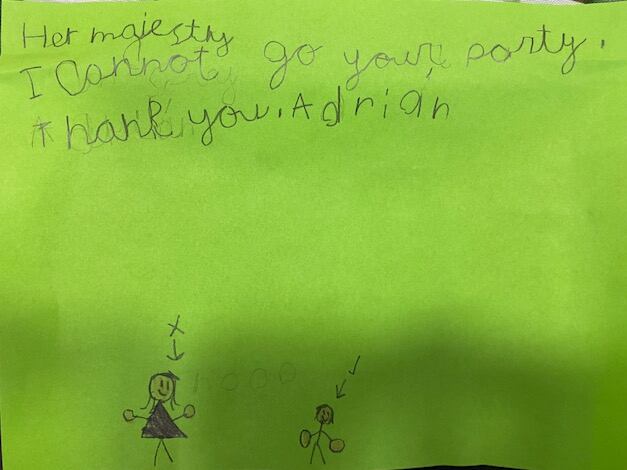 Her majestty
I Cannot go your party.
thank you. Adrian
1000